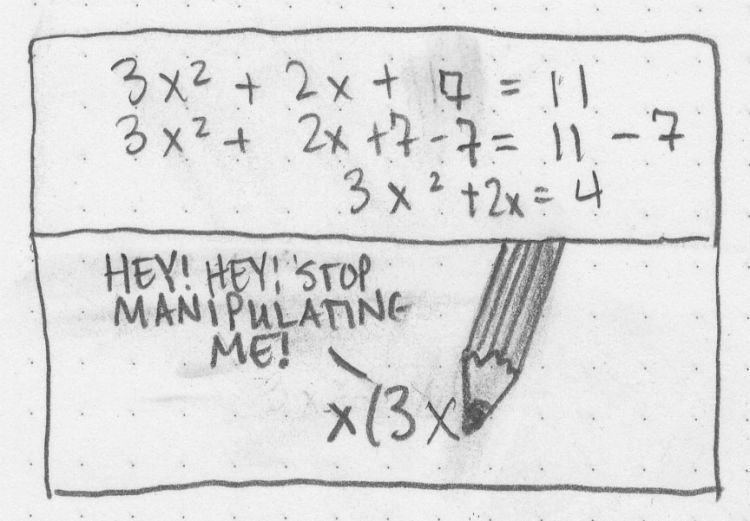 3x² + 2x + 7 = 11
3x² + 2x + 7 - 7 = 11 - 7
3x² + 2x = 4
HEY! HEY! STOP
MANIPULATING
ME!
x(3x